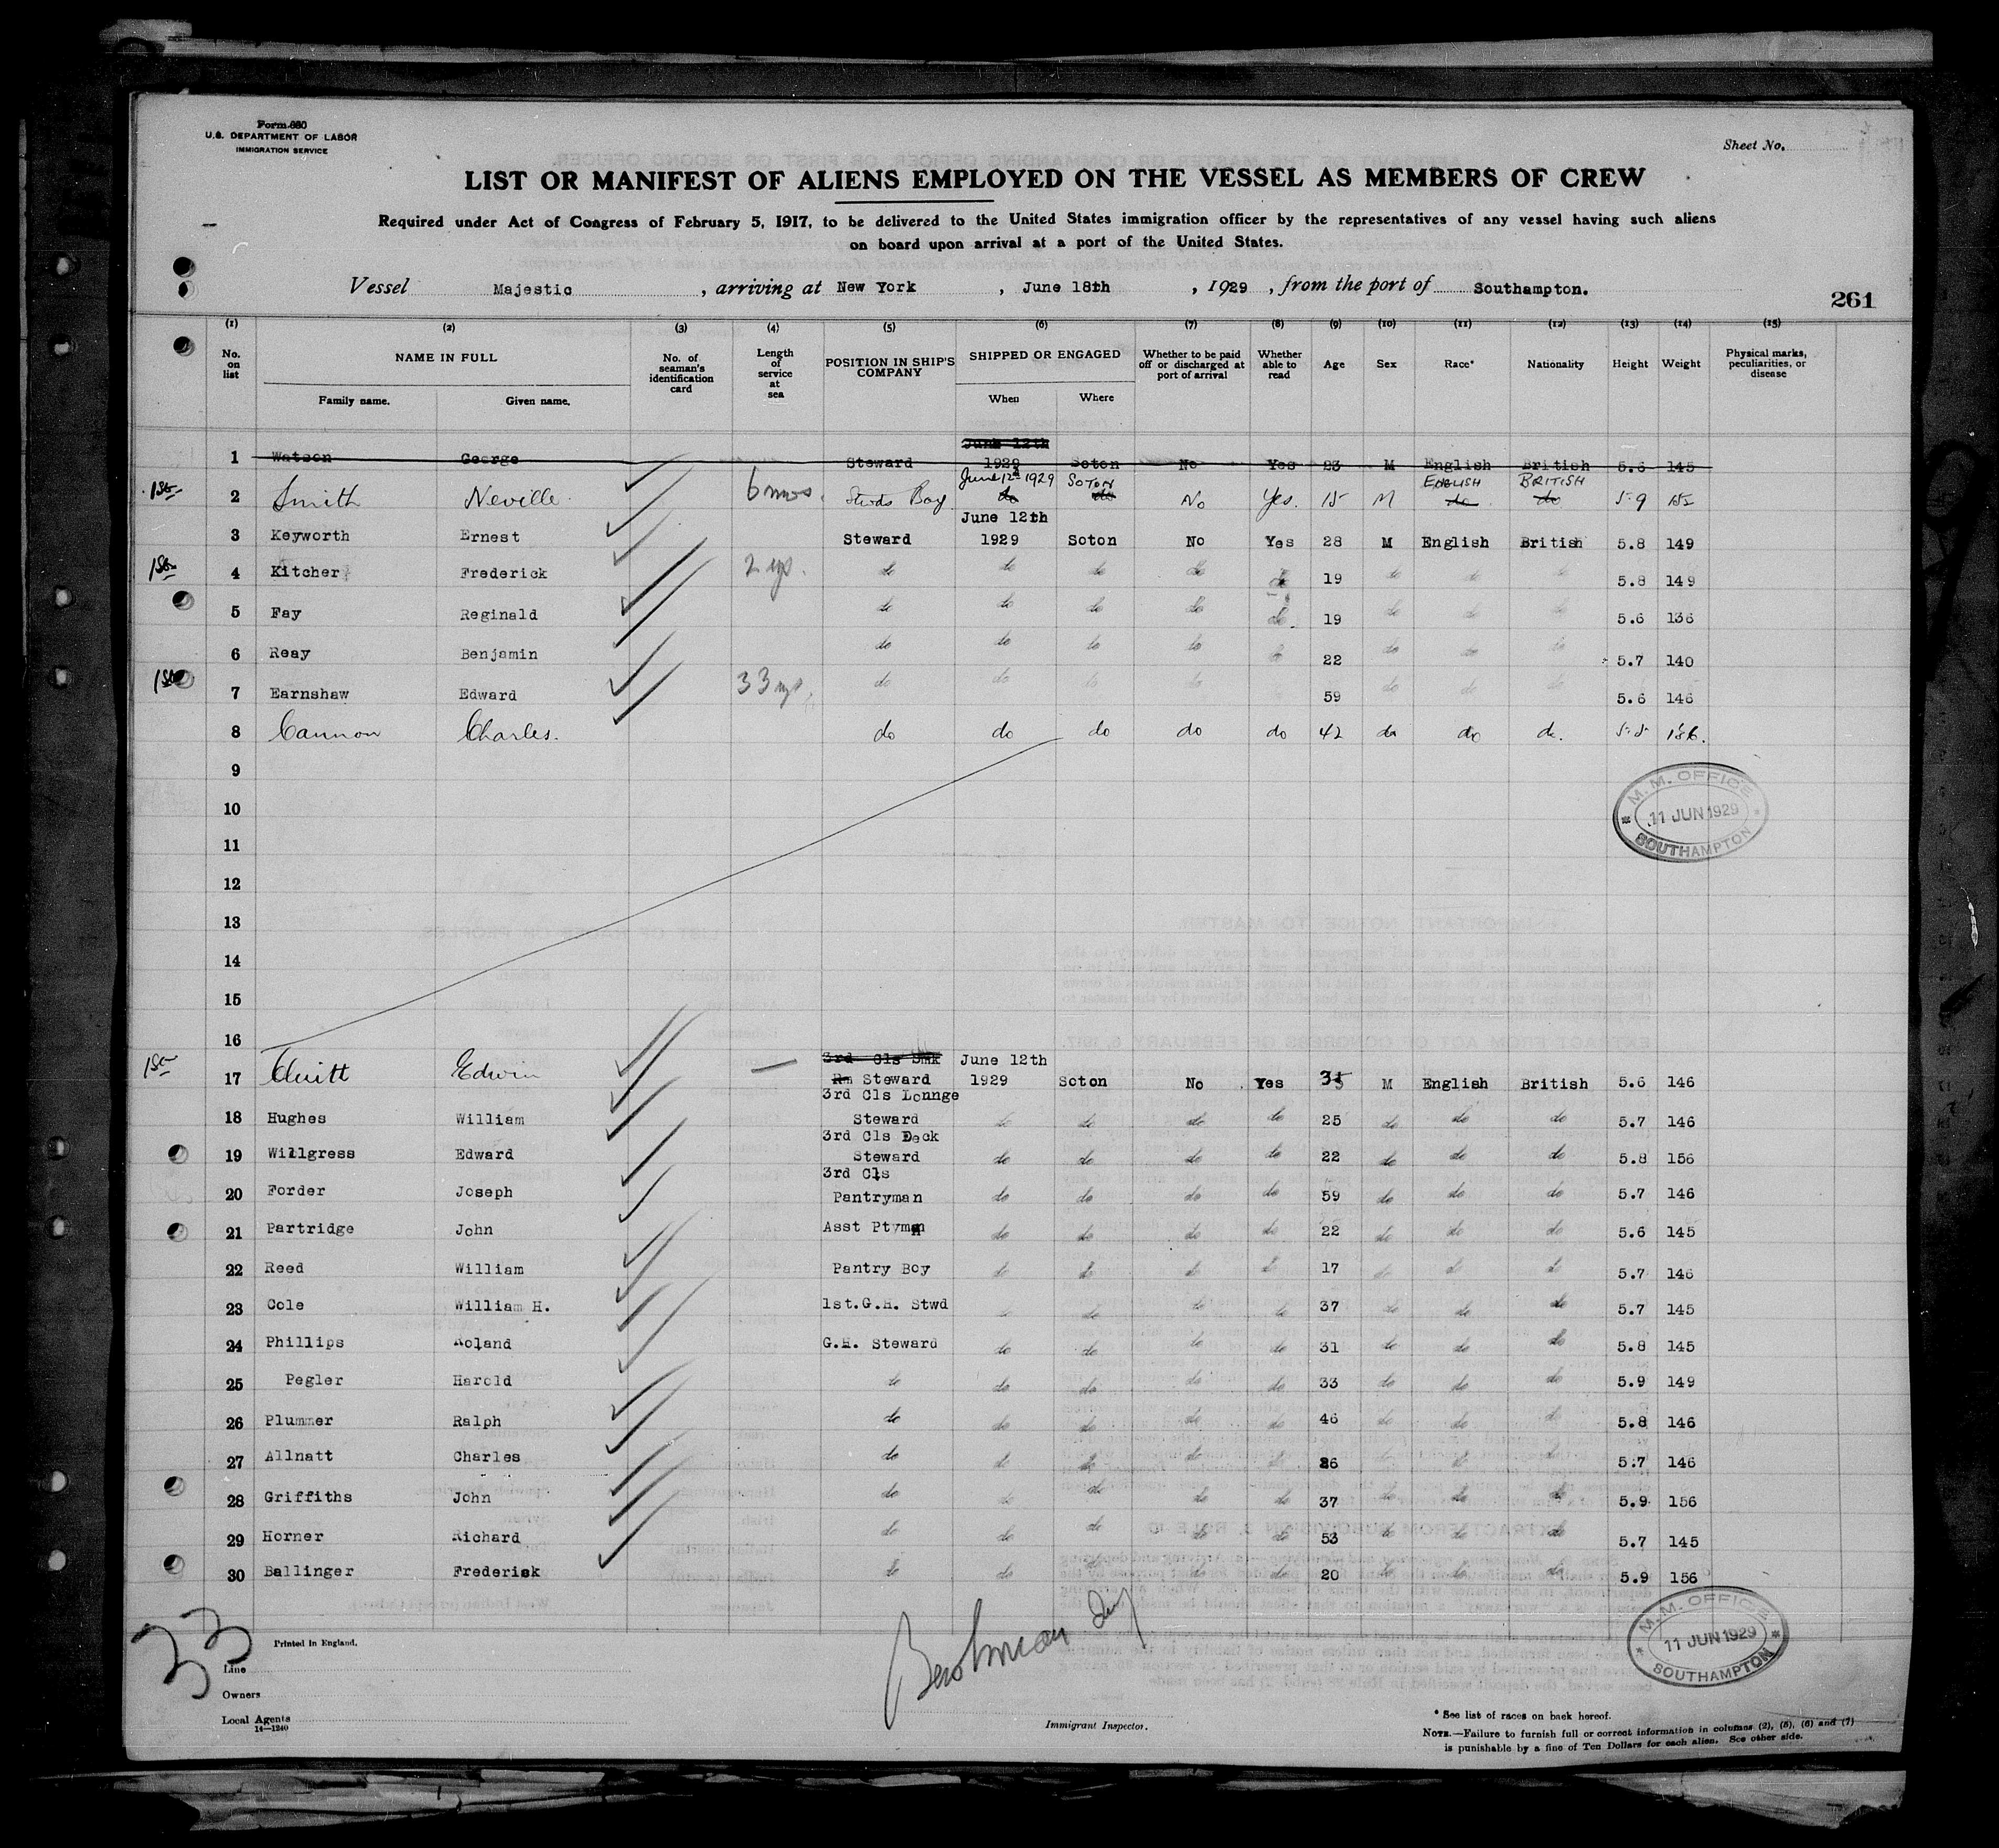 Form 680
U.S. DEPARTMENT OF LABOR
IMMIGRATION SERVICE
Sheet No.
LIST OR MANIFEST OF ALIENS EMPLOYED ON THE VESSEL AS MEMBERS OF CREW
Required under Act of Congress of February 5, 1917, to be delivered to the United States immigration officer by the representatives of any vessel having such aliens
on board upon arrival at a port of the United States.
Vessel Majestic , arriving at New York , June 18th , 1929 , from the port of Southampton.
261
(1) (2) (3) (4) (5) (6) (7) (8) (9) (10) (11) (12) (13) (14) (15)
No. on list NAME IN FULL Family name. Given name. No. of seaman's identification card Length of service at sea POSITION IN SHIP'S COMPANY SHIPPED OR ENGAGED When Where Whether to be paid off or discharged at port of arrival Whether able to read Age Sex Race* Nationality Height Weight Physical marks, peculiarities, or disease
June 12th
1 Watson George Steward 1929 Soton No Yes 23 M English British 5.6 145
June 12th 1929 SOTON ENGLISH BRITISH
2 Smith Neville. 6 mos. Stwds Boy do do No Yes. 15 M do do 5-9
June 12th
3 Keyworth Ernest Steward 1929 Soton No Yes 28 M English British 5.8 149
4 Kitcher Frederick 2 ys. do do do do do 19 do do do 5.8 149
5 Fay Reginald do do do do do 19 do do do 5.6 136
6 Reay Benjamin do do do do do 22 do do do 5.7 140
7 Earnshaw Edward 33 ys. do do do do 59 do do do 5.6 146
8 Cannon Charles. do do do do do 42 do do do. 186.
9
10
M.M. OFFICE
11 JUN 1929
SOUTHAMPTON
11
12
13
14
15
16
3rd Cls Smk June 12th
17 Edwin Rm Steward 1929 Soton No Yes 35 M English British 5.6 146
3rd Cls Lonnge
18 Hughes William Steward do do do do 25 do do do 5.7 146
3rd Cls Deck
19 Willgress Edward Steward do do do do 22 do do do 5.8 156
3rd Cls
20 Forder Joseph Pantryman do do do do 59 do do do 5.7 146
21 Partridge John Asst Ptyman do do do do 22 do do do 5.6 145
22 Reed William Pantry Boy do do do do 17 do do do 5.7 146
23 Cole William H. 1st.G.H. Stwd do do do do 37 do do do 5.7 145
24 Phillips Roland G.H. Steward do do do do 31 do do do 5.8 145
25 Pegler Harold do do do do do 33 do do do 5.9 149
26 Plummer Ralph do do do do do 46 do do do 5.8 146
27 Allnatt Charles do do do do do 26 do do do 5.7 146
28 Griffiths John do do do do do 37 do do do 5.9 156
29 Horner Richard do do do do do 53 do do do 5.7 145
30 Ballinger Frederick do do do do do 20 do do do 5.9 156
33
Printed in England.
Line
Owners
Local Agents
14—1240
Immigrant Inspector.
M.M. OFFICE
11 JUN 1929
SOUTHAMPTON
* See list of races on back hereof.
NOTE.—Failure to furnish full or correct information in columns (2), (5), (6) and (7)
is punishable by a fine of Ten Dollars for each alien. See other side.